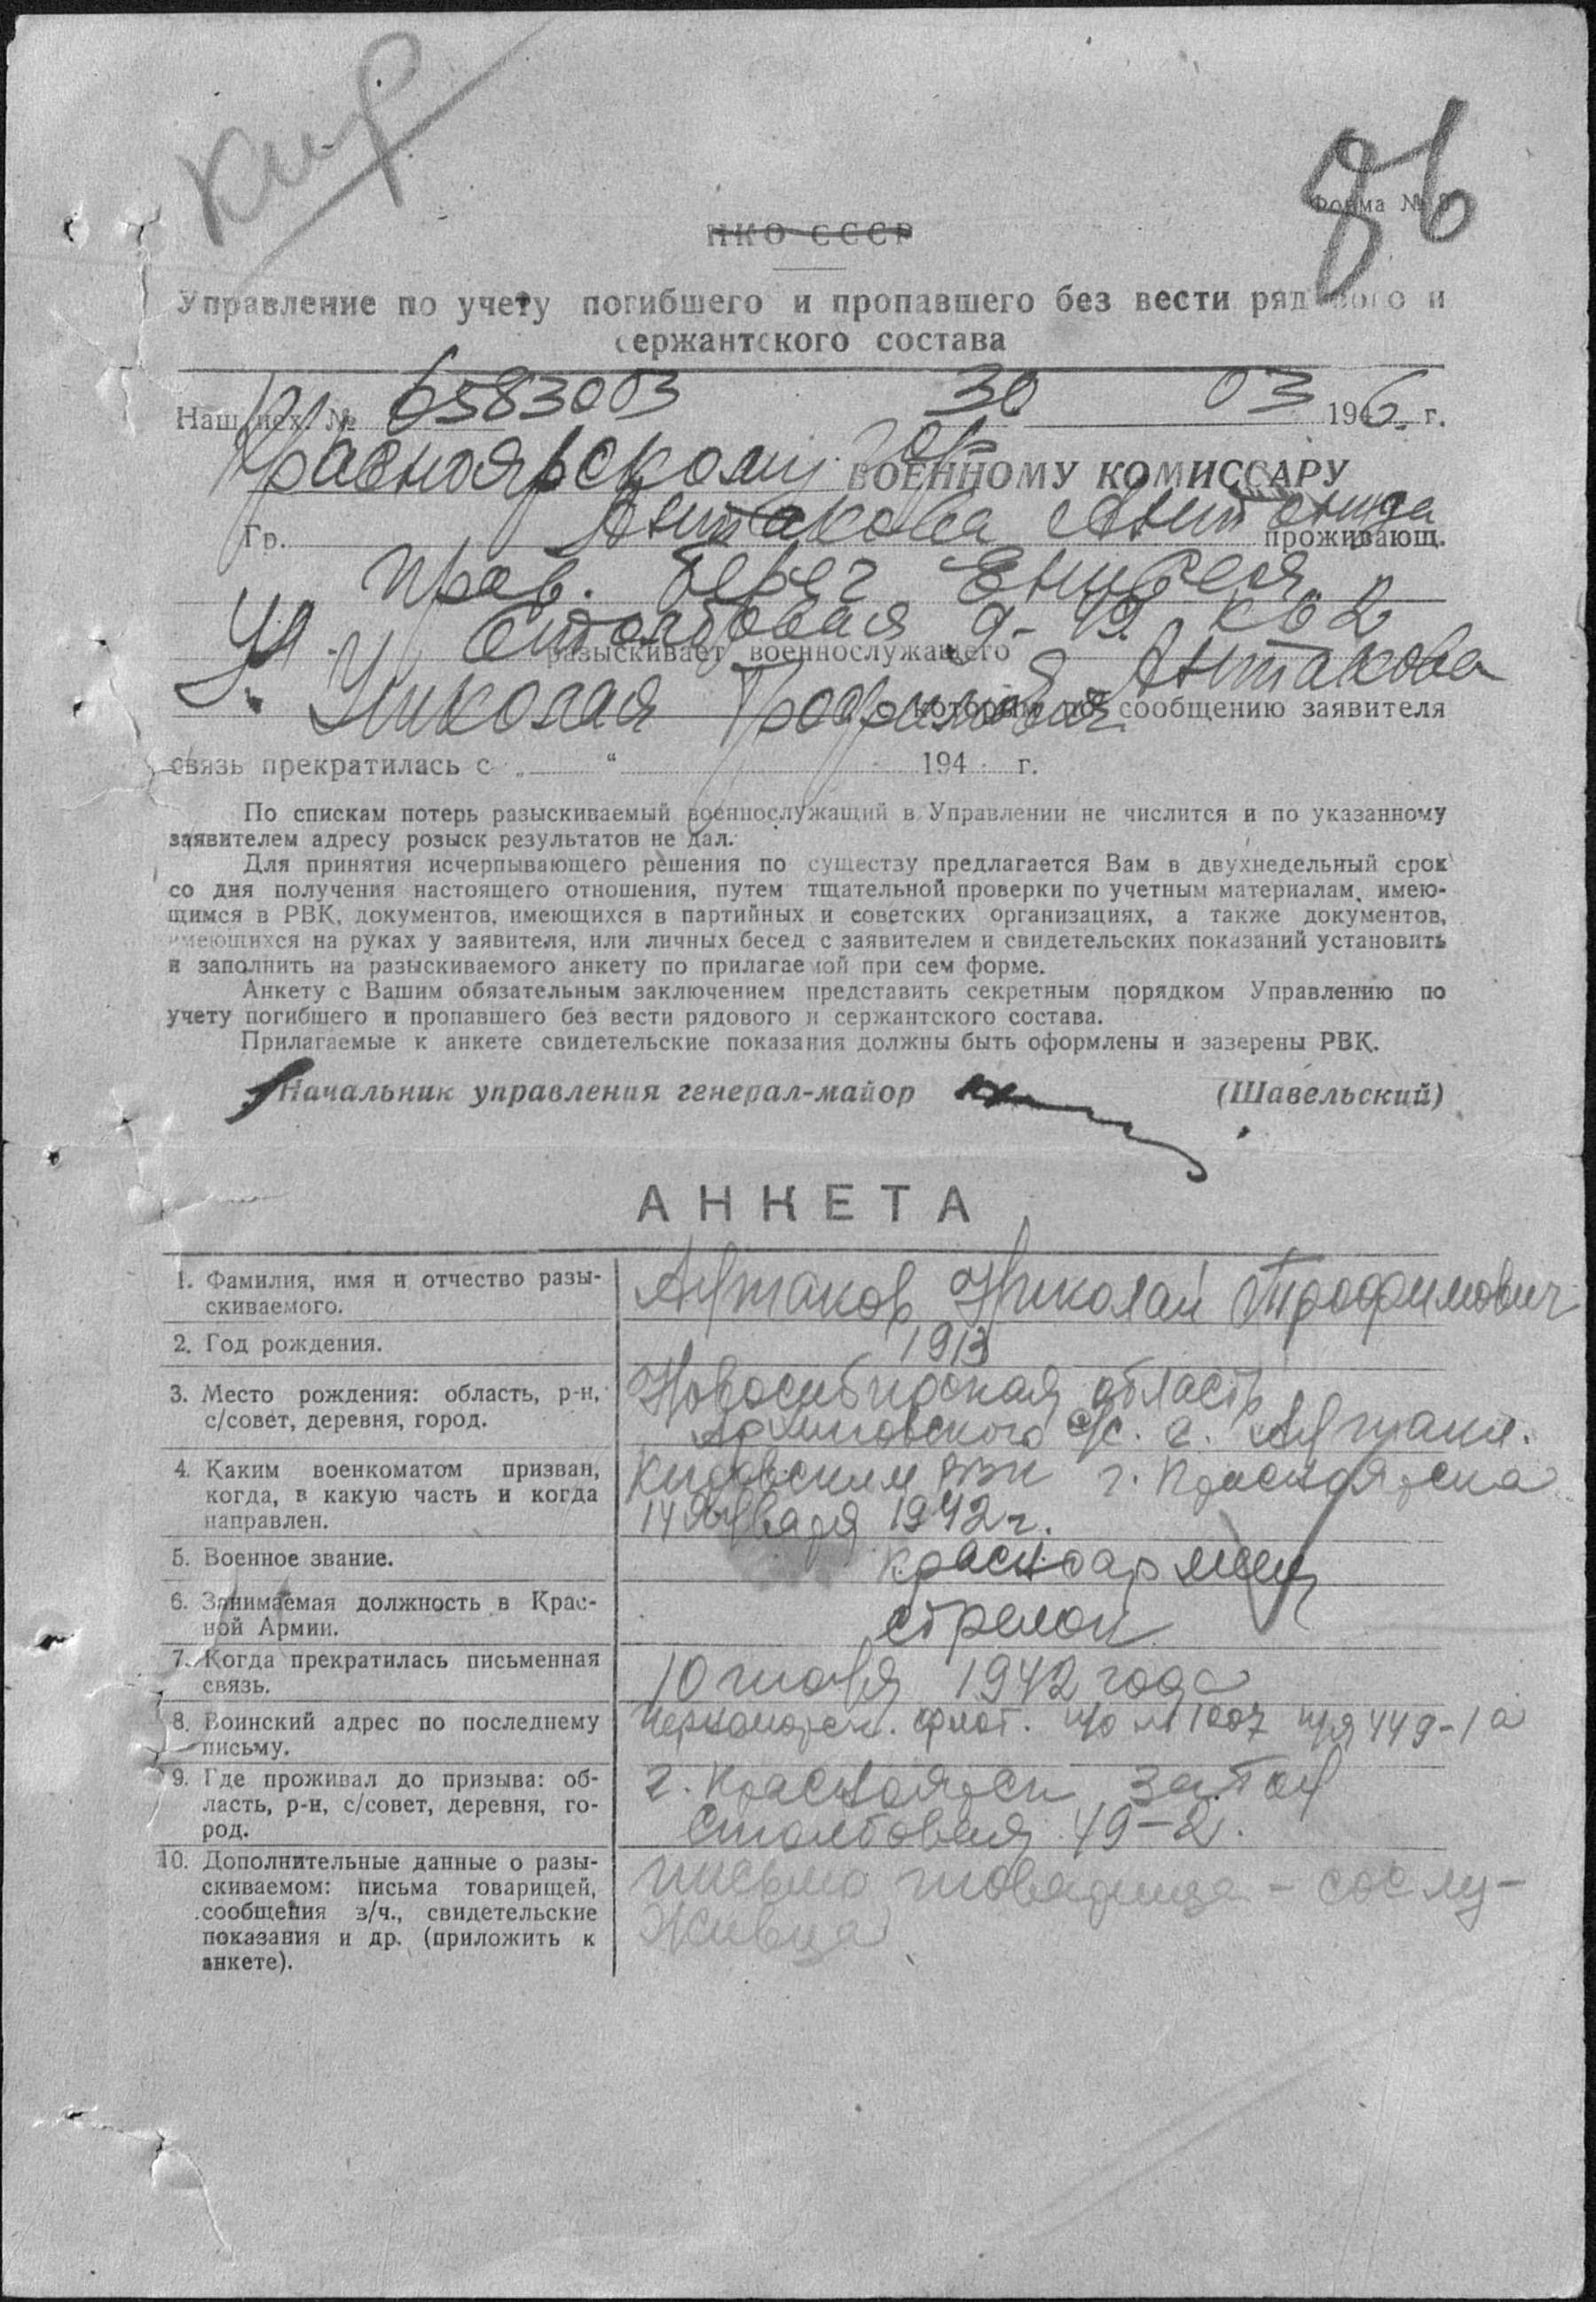 Кир
86
Форма №
НКО СССР
Управление по учету погибшего и пропавшего без вести рядового и
сержантского состава
Наш исх. № 6583003 30 03 1946 г.
Красноярскому гор ВОЕННОМУ КОМИССАРУ
Гр. Антакова Антонида проживающ.
прав. берег Енисея
ул. Столбовая д-49 кв 2
разыскивает военнослужащего Антакова
Николая Трофимовича который по сообщению заявителя
связь прекратилась с „ “ 194 г.
По спискам потерь разыскиваемый военнослужащий в Управлении не числится и по указанному
заявителем адресу розыск результатов не дал.
Для принятия исчерпывающего решения по существу предлагается Вам в двухнедельный срок
со дня получения настоящего отношения, путем тщательной проверки по учетным материалам, имею-
щимся в РВК, документов, имеющихся в партийных и советских организациях, а также документов,
имеющихся на руках у заявителя, или личных бесед с заявителем и свидетельских показаний установить
и заполнить на разыскиваемого анкету по прилагаемой при сем форме.
Анкету с Вашим обязательным заключением представить секретным порядком Управлению по
учету погибшего и пропавшего без вести рядового и сержантского состава.
Прилагаемые к анкете свидетельские показания должны быть оформлены и заверены РВК.
Начальник управления генерал-майор (Шавельский)
АНКЕТА
1. Фамилия, имя и отчество разы-
скиваемого.
Антаков Николай Трофимович
2. Год рождения.
1913
3. Место рождения: область, р-н,
с/совет, деревня, город.
Новосибирская область
с/с. д. Антаки.
4. Каким военкоматом призван,
когда, в какую часть и когда
направлен.
Кировским РВК г. Красноярска
14 января 1942 г.
5. Военное звание.
красноармеец
6. Занимаемая должность в Крас-
ной Армии.
стрелок
7. Когда прекратилась письменная
связь.
10 1942 года
8. Воинский адрес по последнему
письму.
Черноморск. флот. п/о № 1007 п/я 449-1а
9. Где проживал до призыва: об-
ласть, р-н, с/совет, деревня, го-
род.
г. Красноярск затон
Столбовая 49-2.
10. Дополнительные данные о разы-
скиваемом: письма товарищей,
сообщения в/ч., свидетельские
показания и др. (приложить к
анкете).
письмо товарища - сослу-
живца